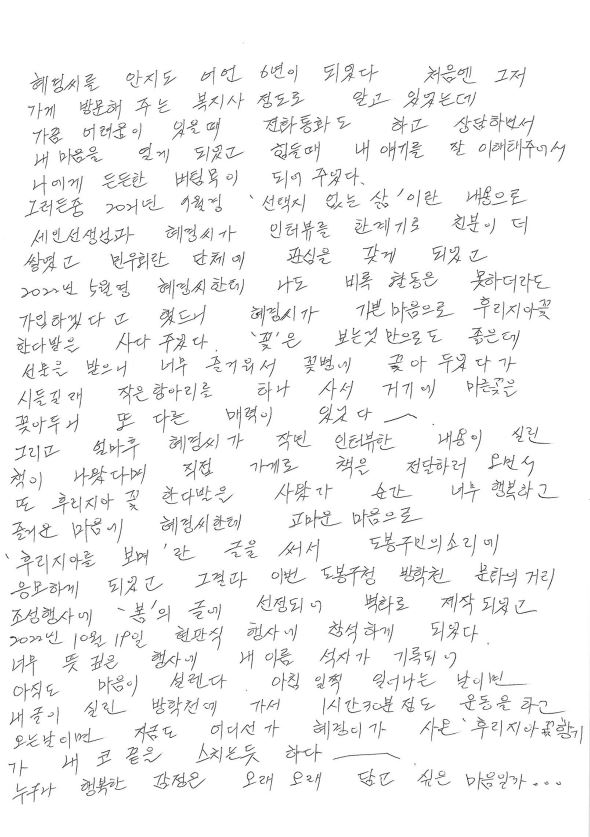 혜정씨를 안지도 어언 6년이 되었다 처음엔 그저
가게 방문해 주는 복지사 정도로 알고 있었는데
가끔 어려움이 있을때 전화통화도 하고 상담하면서
내 마음을 열게 되었고 힘들때 내 얘기를 잘 이해해주어서
나에게 든든한 버팀목이 되어 주었다.
그러든중 2021년 9월경 '선택지 없는 삶'이란 내용으로
세인선생님과 혜정씨가 인터뷰를 한계기로 친분이 더
쌓였고 민우회란 단체에 관심을 갖게 되었고
2022년 5월경 혜정씨한테 나도 비록 활동은 못하더라도
가입하겠다고 했드니 혜정씨가 기쁜마음으로 후리지아꽃
한다발은 사다 주었다 '꽃'은 보는것 만으로도 좋은데
선물을 받으니 너무 즐거워서 꽃병에 꽃아 두었다가
시들길래 작은항아리를 하나 사서 거기에 마른꽃은
꽃아두니 또 다른 매력이 있었다 ~
그리고 얼마후 혜정씨가 작년 인터뷰한 내용이 실린
책이 나왔다며 직접 가게로 책을 전달하러 오면서
또 후리지아 꽃 한다발은 사왔다 순간 너무 행복하고
즐거운 마음에 혜정씨한테 고마운 마음으로
'후리지아를 보며'란 글을 써서 도봉구민의소리에
응모하게 되었고 그결과 이번 도봉구청 방학천 문화의 거리
조성행사에 '봄'의 글에 선정되어 벽화로 제작되었고
2022년 10월 19일 현판식 행사에 참석하게 되었다.
너무 뜻 깊은 행사에 내 이름 석자가 기록되어
아직도 마음이 설렌다 아침 일찍 일어나는 날이면
내글이 실린 방학천에 가서 1시간30분정도 운동을 하고
오는날이면 지금도 어디선가 혜정이가 사온 '후리지아꽃향기
가 내 코 끝을 스치는듯 하다 ~
누구나 행복한 감정은 오래 오래 담고 싶은 마음일까...